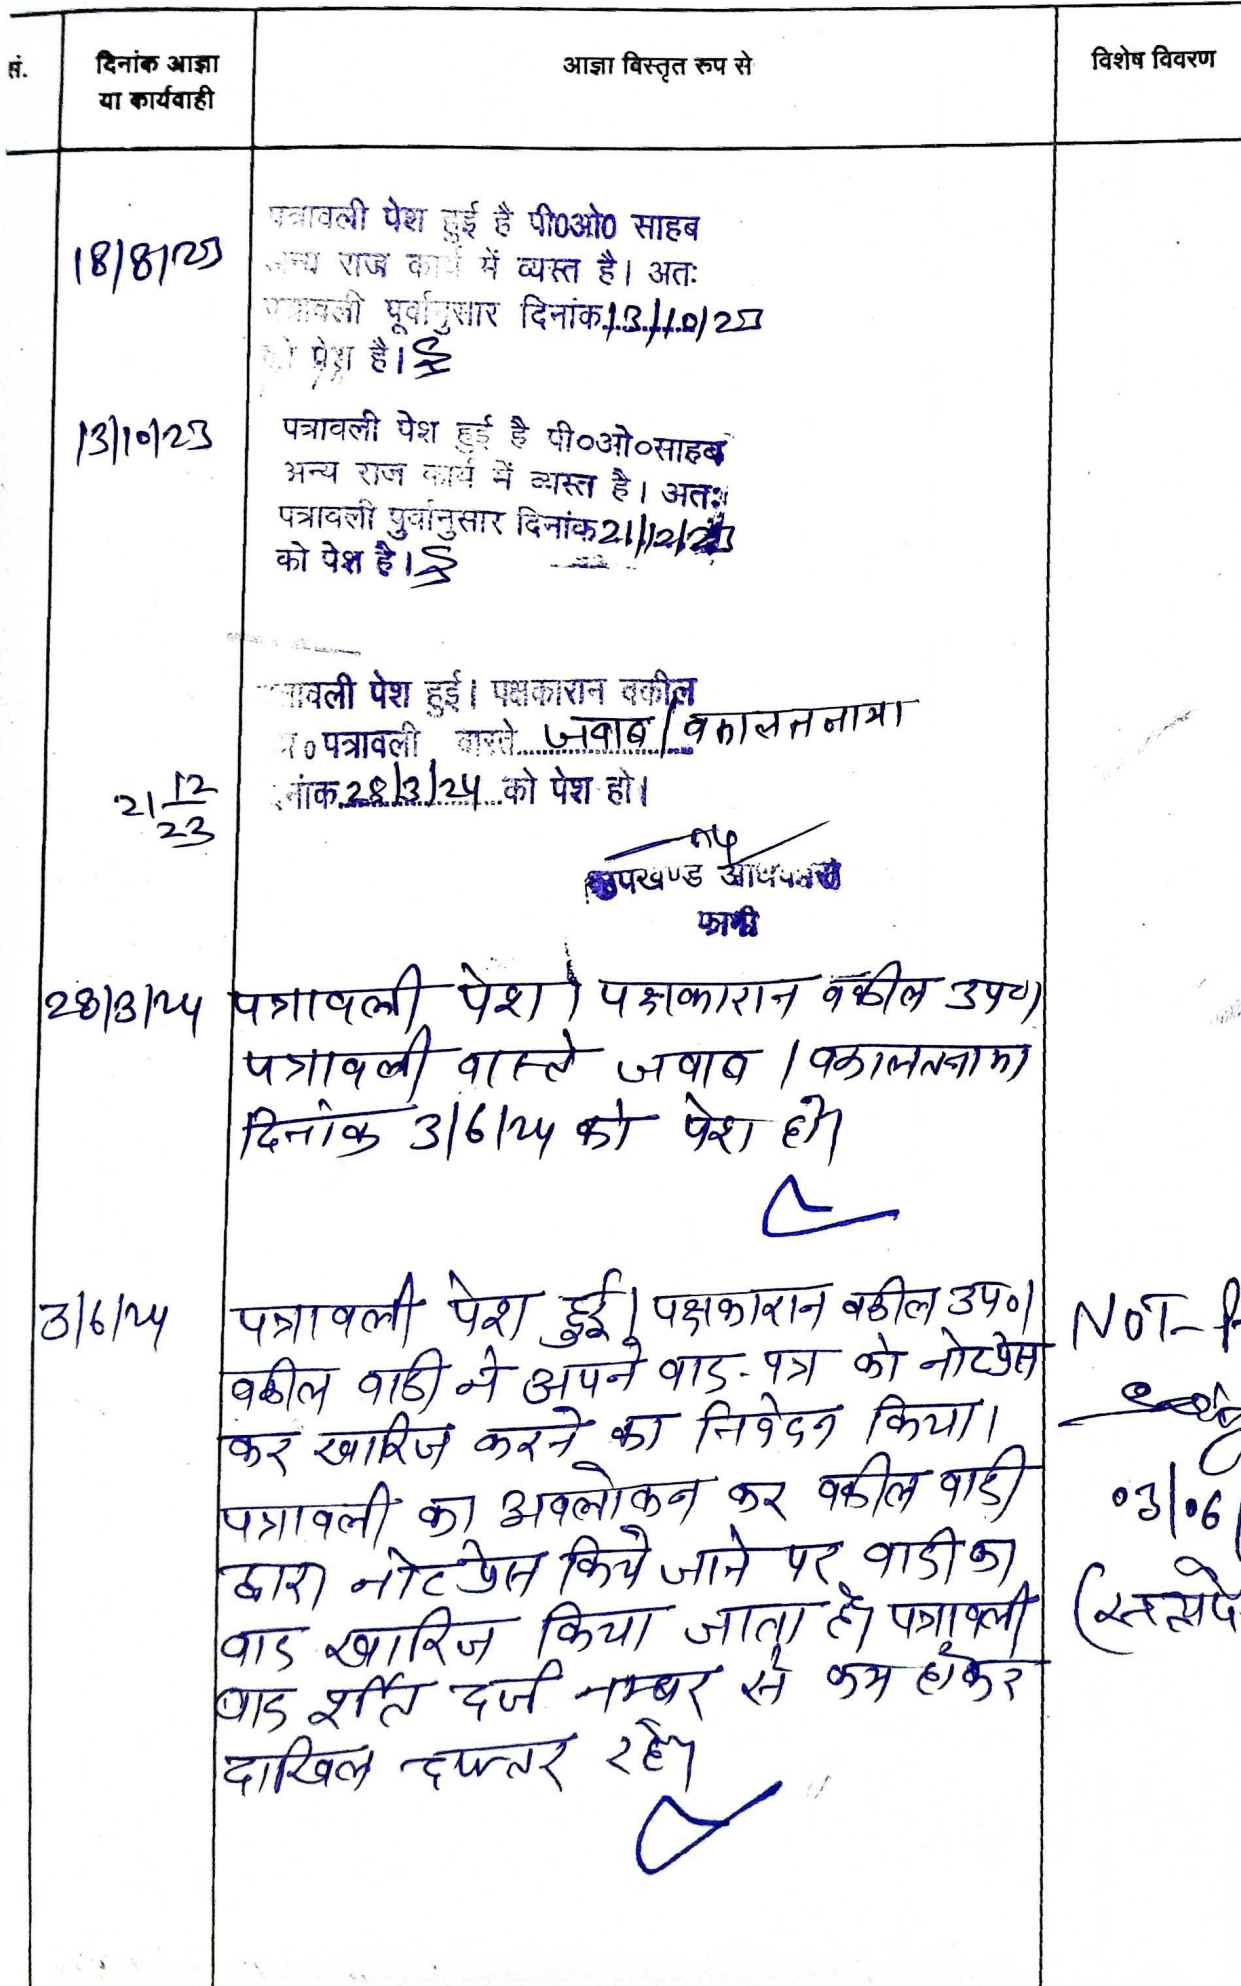 सं.
दिनांक आज्ञा
या कार्यवाही
आज्ञा विस्तृत रूप से
विशेष विवरण
18/8/23
पत्रावली पेश हुई है पी0ओ0 साहब
अन्य राज कार्य में व्यस्त है। अतः
पत्रावली पूर्वानुसार दिनांक 13/10/23
को पेश है।
13/10/23
पत्रावली पेश हुई है पी०ओ०साहब
अन्य राज कार्य में व्यस्त है। अतः
पत्रावली पुर्वानुसार दिनांक 21/12/23
को पेश है।
21 12/23
पत्रावली पेश हुई। पक्षकारान वकील
पत्रावली वास्ते जवाब/वकालतनामा
दिनांक 28/3/24 को पेश हो।
उपखण्ड अधिकारी
फागी
28/3/24
पत्रावली पेश। पक्षकारान वकील उप०।
पत्रावली वास्ते जवाब / वकालतनामा
दिनांक 3/6/24 को पेश हो।
3/6/24
पत्रावली पेश हुई। पक्षकारान वकील उप०।
वकील वादी ने अपने वाद-पत्र को नोटप्रेस
कर खारिज करने का निवेदन किया।
पत्रावली का अवलोकन कर वकील वादी
द्वारा नोटप्रेस किये जाने पर वादी का
वाद खारिज किया जाता है। पत्रावली
वाद दर्ज नम्बर से कम होकर
दाखिल दफ्तर रहे।
NOT-
03/06/